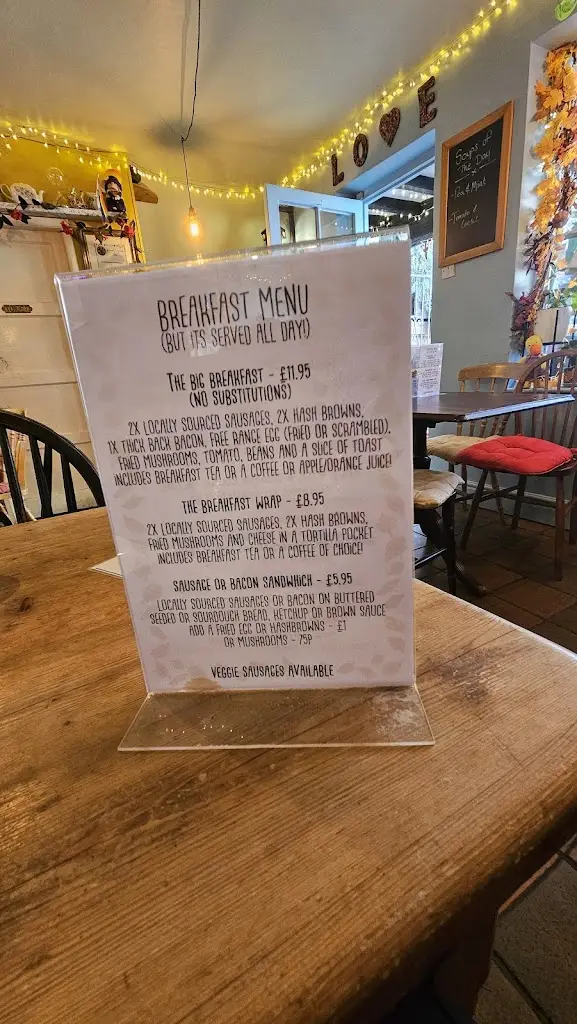 BREAKFAST MENU
(BUT ITS SERVED ALL DAY!)
THE BIG BREAKFAST - £11.95
(NO SUBSTITUTIONS)
2X LOCALLY SOURCED SAUSAGES, 2X HASH BROWNS,
1X THICK BACK BACON, FREE RANGE EGG (FRIED OR SCRAMBLED),
FRIED MUSHROOMS, TOMATO, BEANS AND A SLICE OF TOAST
INCLUDES BREAKFAST TEA OR A COFFEE OR APPLE/ORANGE JUICE!
THE BREAKFAST WRAP - £8.95
2X LOCALLY SOURCED SAUSAGES, 2X HASH BROWNS,
FRIED MUSHROOMS AND CHEESE IN A TORTILLA POCKET
INCLUDES BREAKFAST TEA OR A COFFEE OF CHOICE!
SAUSAGE OR BACON SANDWHICH - £5.95
LOCALLY SOURCED SAUSAGES OR BACON ON BUTTERED
SEEDED OR SOURDOUGH BREAD, KETCHUP OR BROWN SAUCE
ADD A FRIED EGG OR HASHBROWNS - £1
OR MUSHROOMS - 75P
VEGGIE SAUSAGES AVAILABLE
LOVE
Soups of
the Day
Pea & Mint
Tomato &